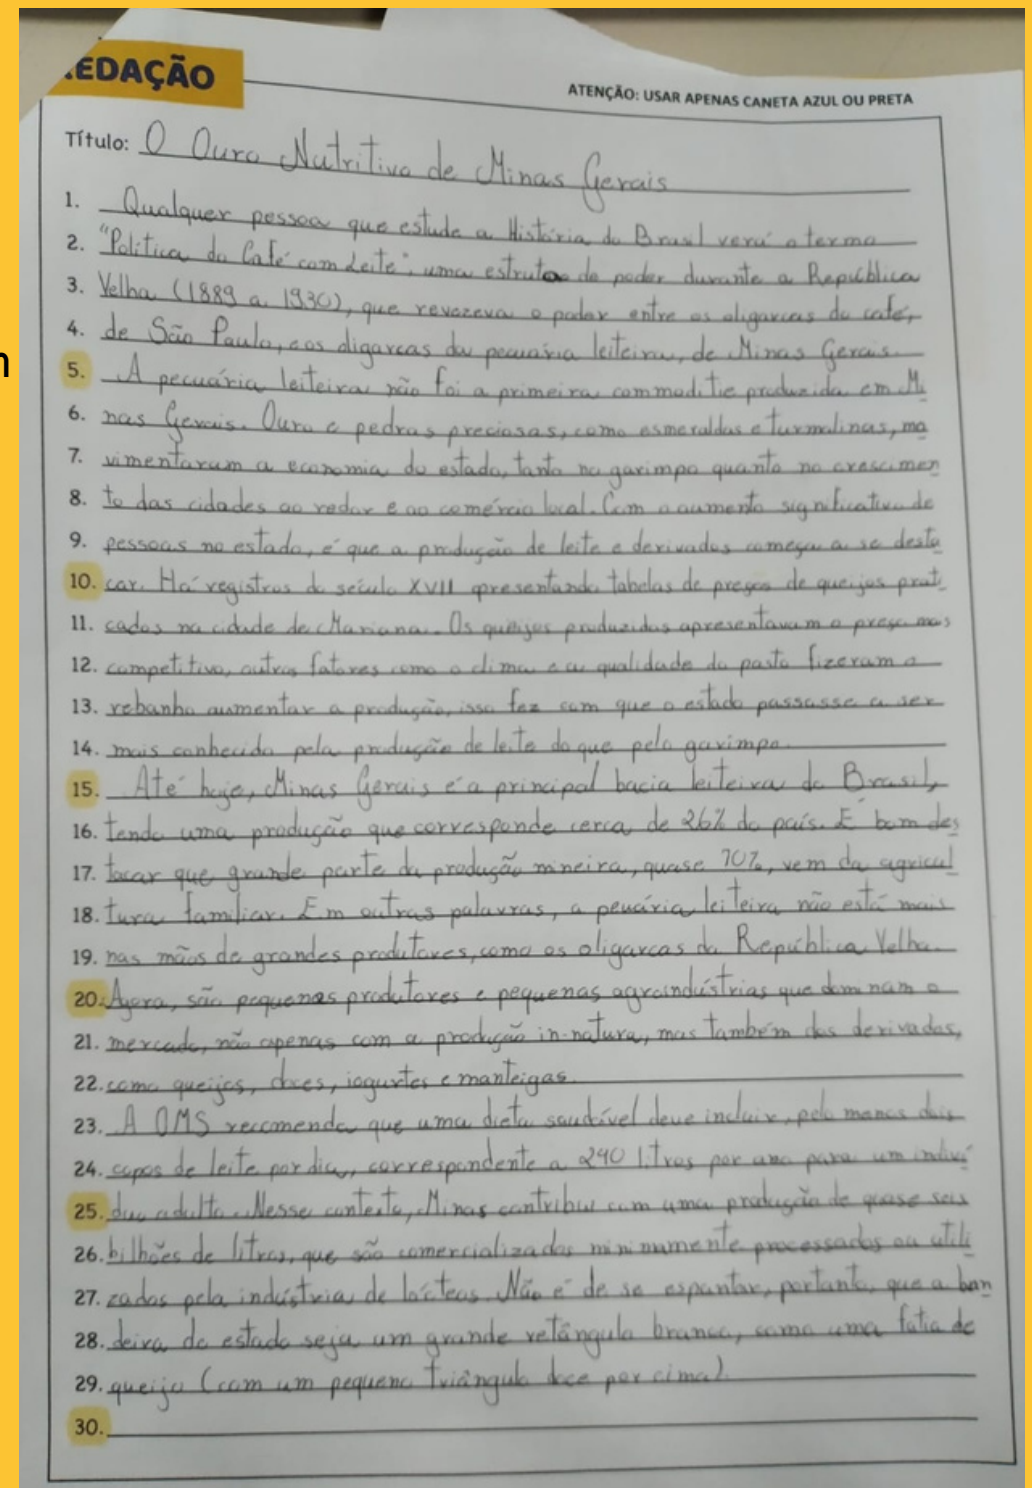 REDAÇÃO
ATENÇÃO: USAR APENAS CANETA AZUL OU PRETA
Título: O Ouro Nutritivo de Minas Gerais
1. Qualquer pessoa que estude a História do Brasil verá o termo
2. "Política do Café com Leite", uma estrutura de poder durante a República
3. Velha (1889 a 1930), que revezava o poder entre os oligarcas do café,
4. de São Paulo, e os oligarcas da pecuária leiteira, de Minas Gerais.
5. A pecuária leiteira não foi a primeira commoditie produzida em Mi
6. nas Gerais. Ouro e pedras preciosas, como esmeraldas e turmalinas, mo
7. vimentaram a economia do estado, tanto no garimpo quanto no crescimen
8. to das cidades ao redor e ao comércio local. Com o aumento significativo de
9. pessoas no estado, é que a produção de leite e derivados começa a se desta
10. car. Há registros do século XVII apresentando tabelas de preços de queijos prati
11. cados na cidade de Mariana. Os queijos produzidos apresentavam o preço mais
12. competitivo, outros fatores como o clima e a qualidade do pasto fizeram o
13. rebanho aumentar a produção, isso fez com que o estado passasse a ser
14. mais conhecido pela produção de leite do que pelo garimpo.
15. Até hoje, Minas Gerais é a principal bacia leiteira do Brasil,
16. tendo uma produção que corresponde cerca de 26% do país. É bom des
17. tacar que grande parte da produção mineira, quase 70%, vem da agricul
18. tura familiar. Em outras palavras, a pecuária leiteira não está mais
19. nas mãos de grandes produtores, como os oligarcas da República Velha.
20. Agora, são pequenos produtores e pequenas agroindústrias que dominam o
21. mercado, não apenas com a produção in-natura, mas também dos derivados,
22. como queijos, doces, iogurtes e manteigas.
23. A OMS recomenda que uma dieta saudável deve incluir, pelo menos dois
24. copos de leite por dia, correspondente a 240 litros por ano para um indiví
25. duo adulto. Nesse contexto, Minas contribui com uma produção de quase seis
26. bilhões de litros, que são comercializados minimamente processados ou utili
27. zados pela indústria de lácteos. Não é de se espantar, portanto, que a ban
28. deira do estado seja um grande retângulo branco, como uma fatia de
29. queijo (com um pequeno triângulo doce por cima).
30.